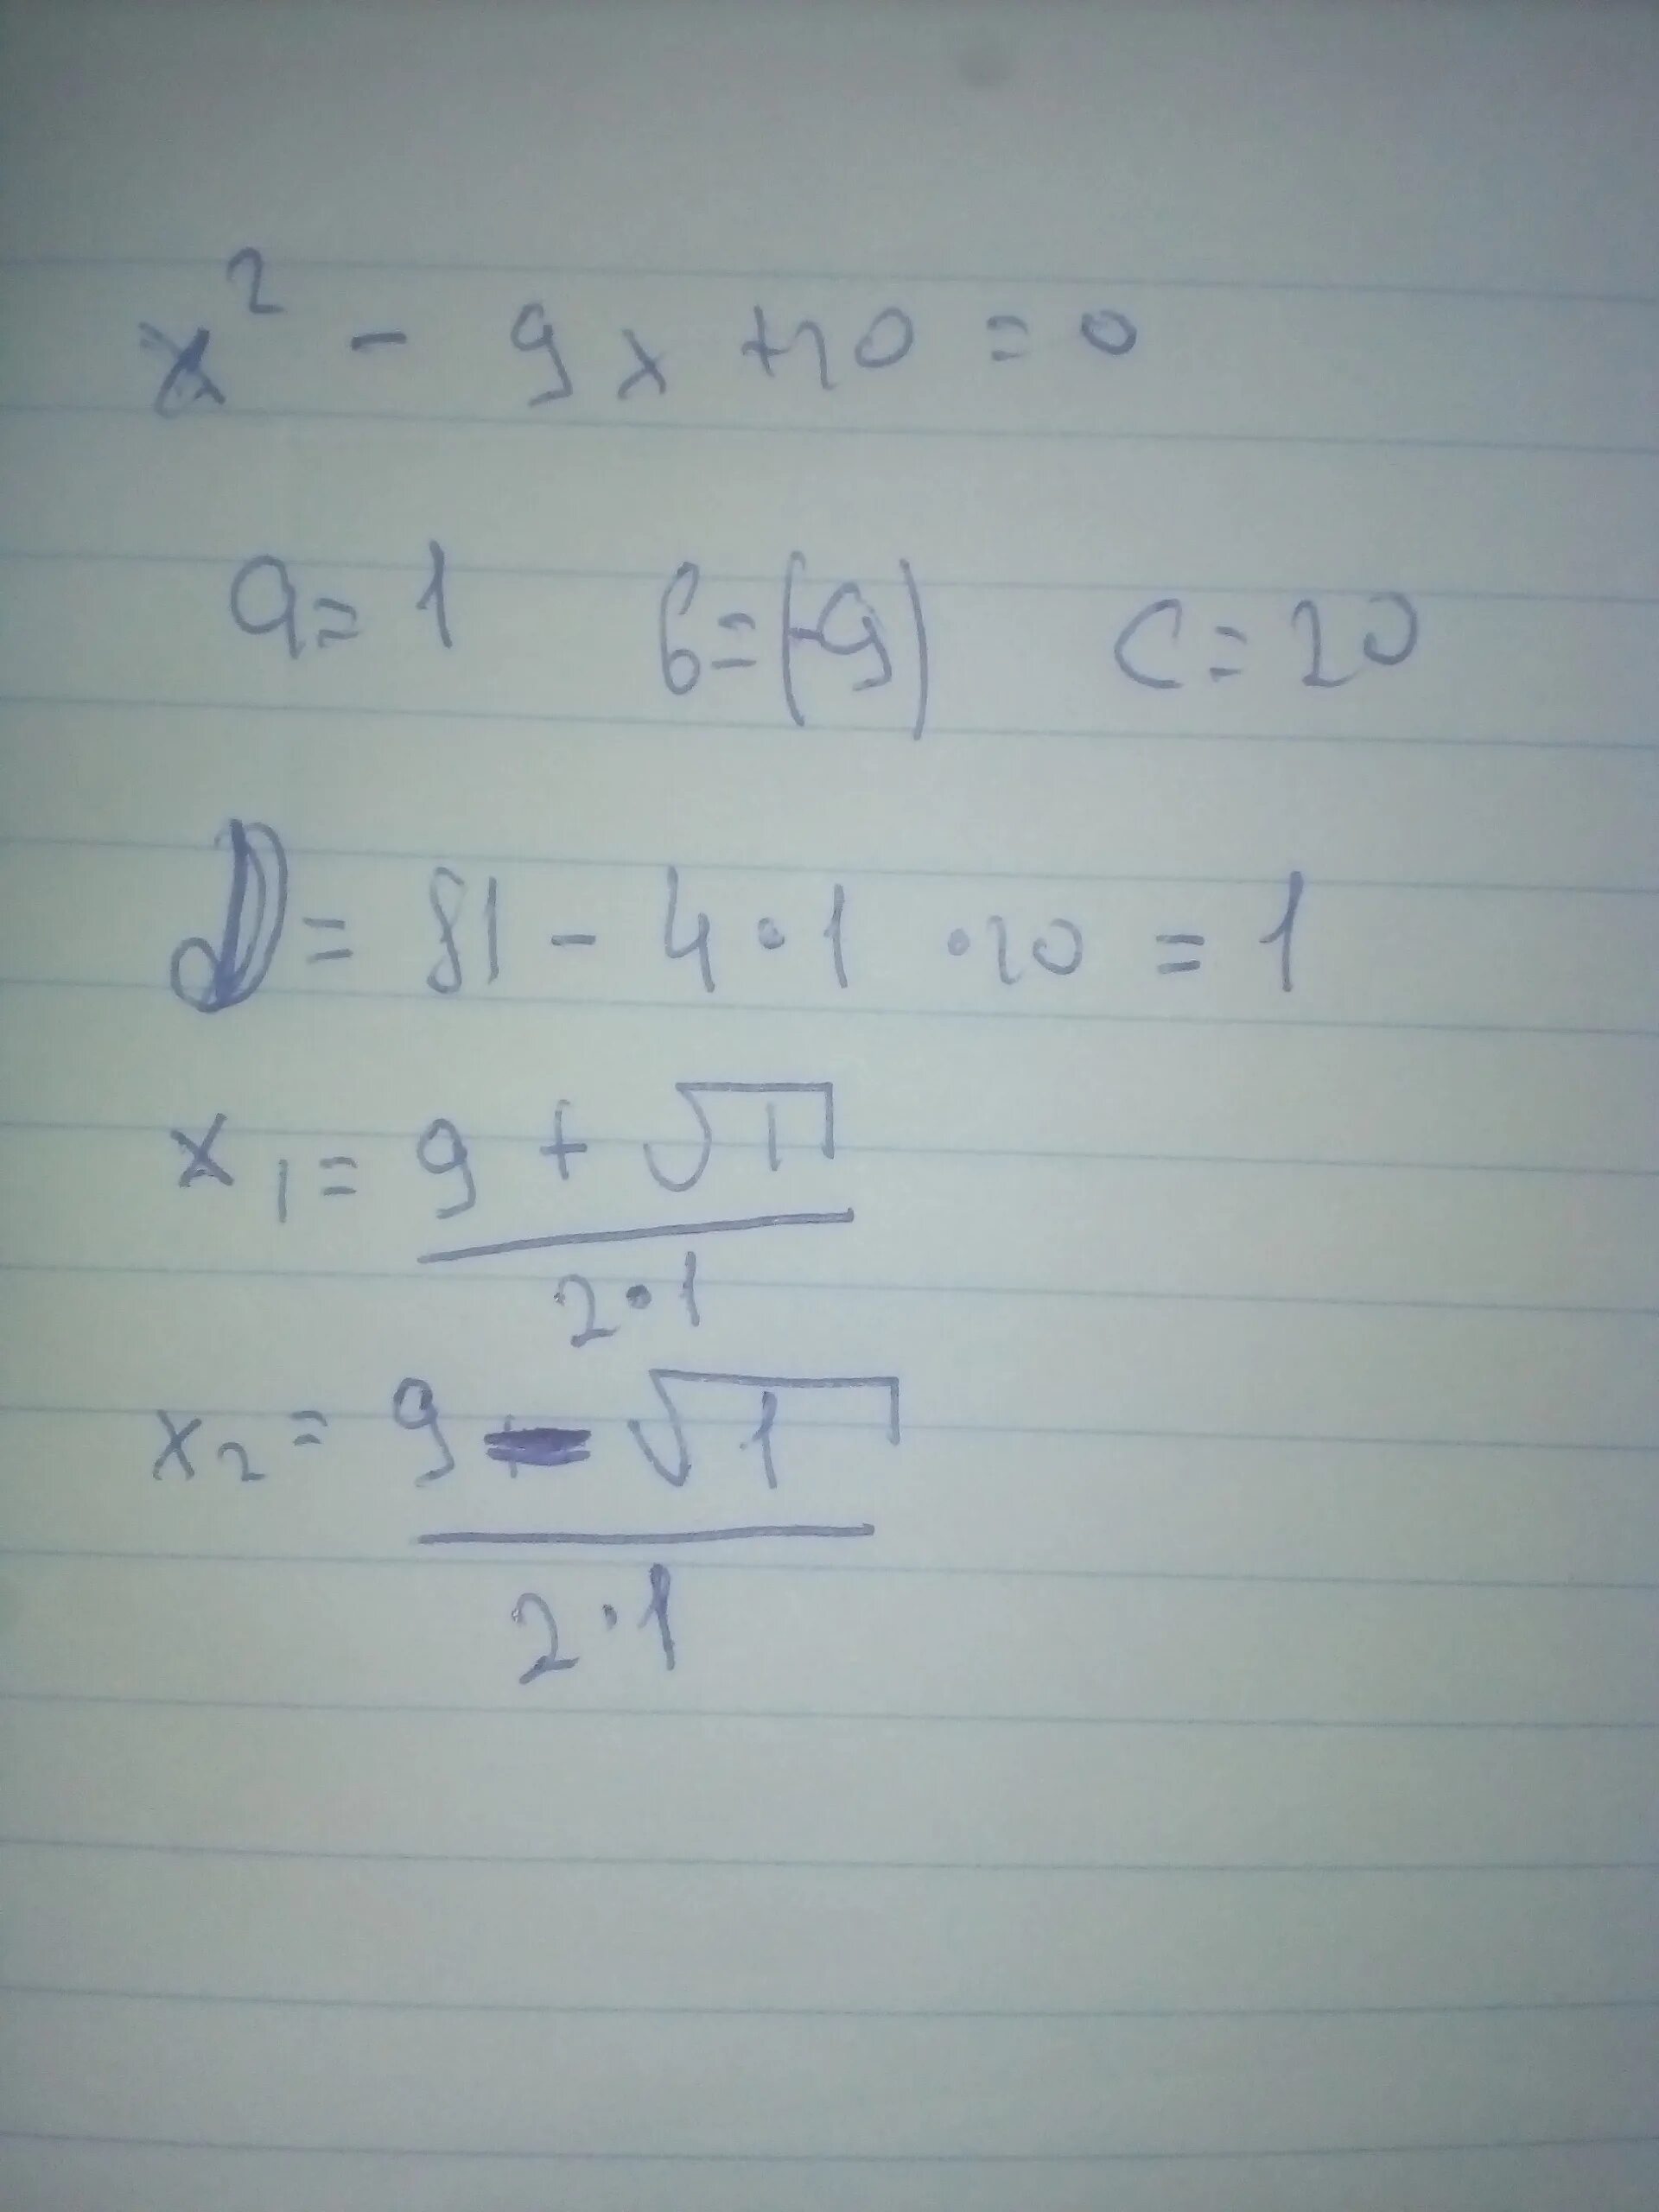 x² - 9x + 20 = 0
a = 1 b = (-9) c = 20
D = 81 - 4 · 1 · 20 = 1
x₁ = 9 + √1
2 · 1
x₂ = 9 - √1
2 · 1